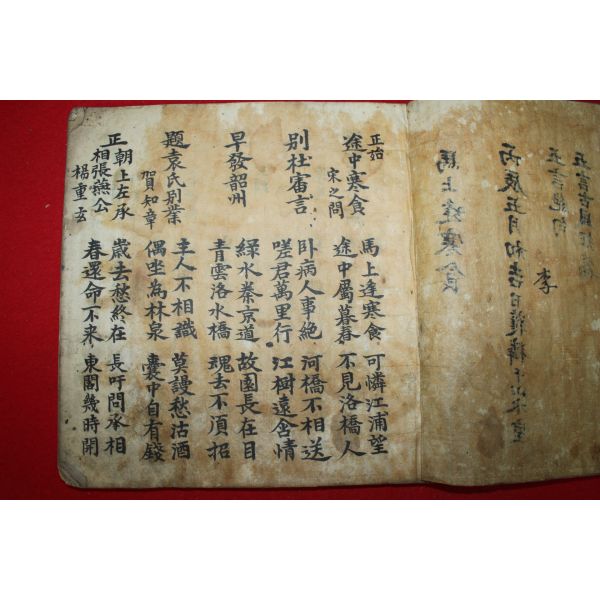 五言絶句
李
馬上逢寒食
正始
途中寒食
宋之問
馬上逢寒食 可憐江浦望
途中屬暮春 不見洛橋人
別杜審言
卧病人事絶 河橋不相送
嗟君萬里行 江樹遠含情
早發韶州
綠水秦京道 故園長在目
青雲洛水橋 魂去不湏招
題袁氏別業
賀知章
主人不相識 莫謾愁沽酒
偶坐為林泉 囊中自有錢
正朝上左承
相張燕公
楊重玄
歲去愁終在 長吁問承相
春還命不來 東閣幾時開